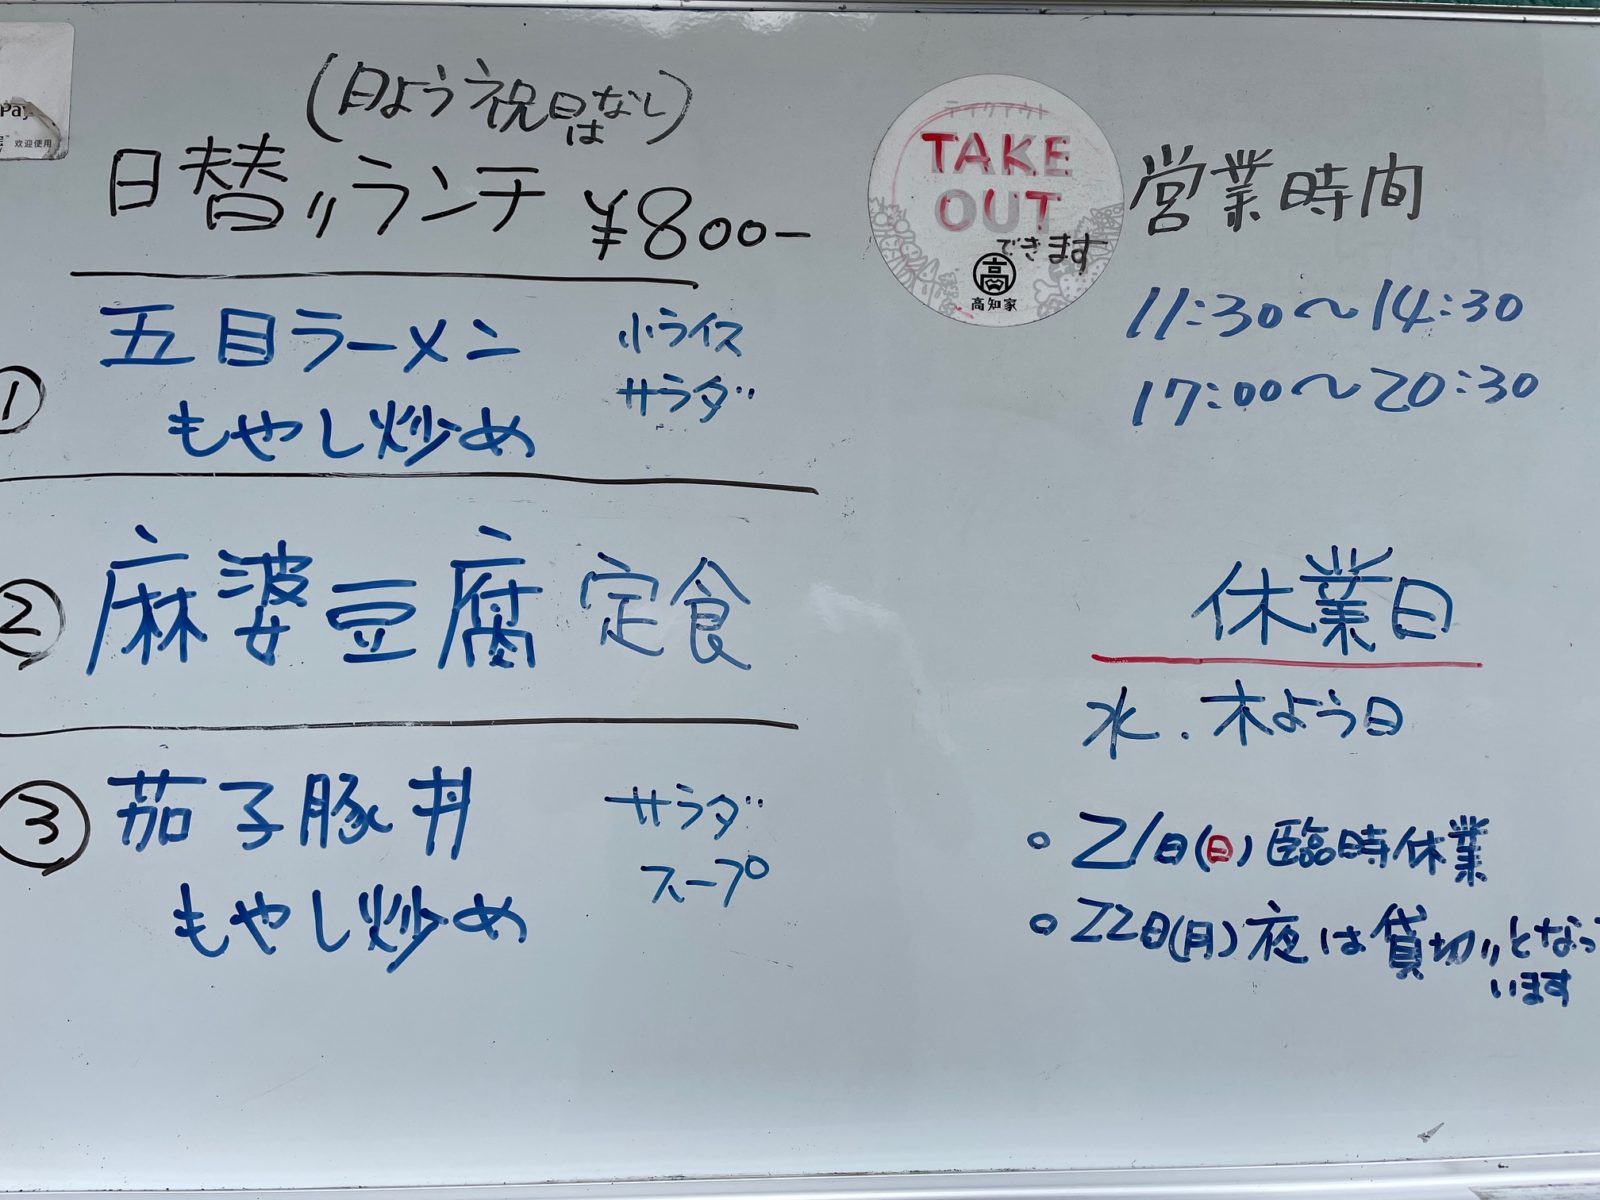 Pay
欢迎使用
(日よう祝日はなし)
日替りランチ ¥800-
① 五目ラーメン 小ライス
もやし炒め サラダ
② 麻婆豆腐定食
③ 茄子豚丼 サラダ
もやし炒め スープ
テイクアウト
TAKE
OUT
できます
高
高知家
営業時間
11:30〜14:30
17:00〜20:30
休業日
水.木よう日
○21日(日)臨時休業
○22日(月)夜は貸切りとなって
います